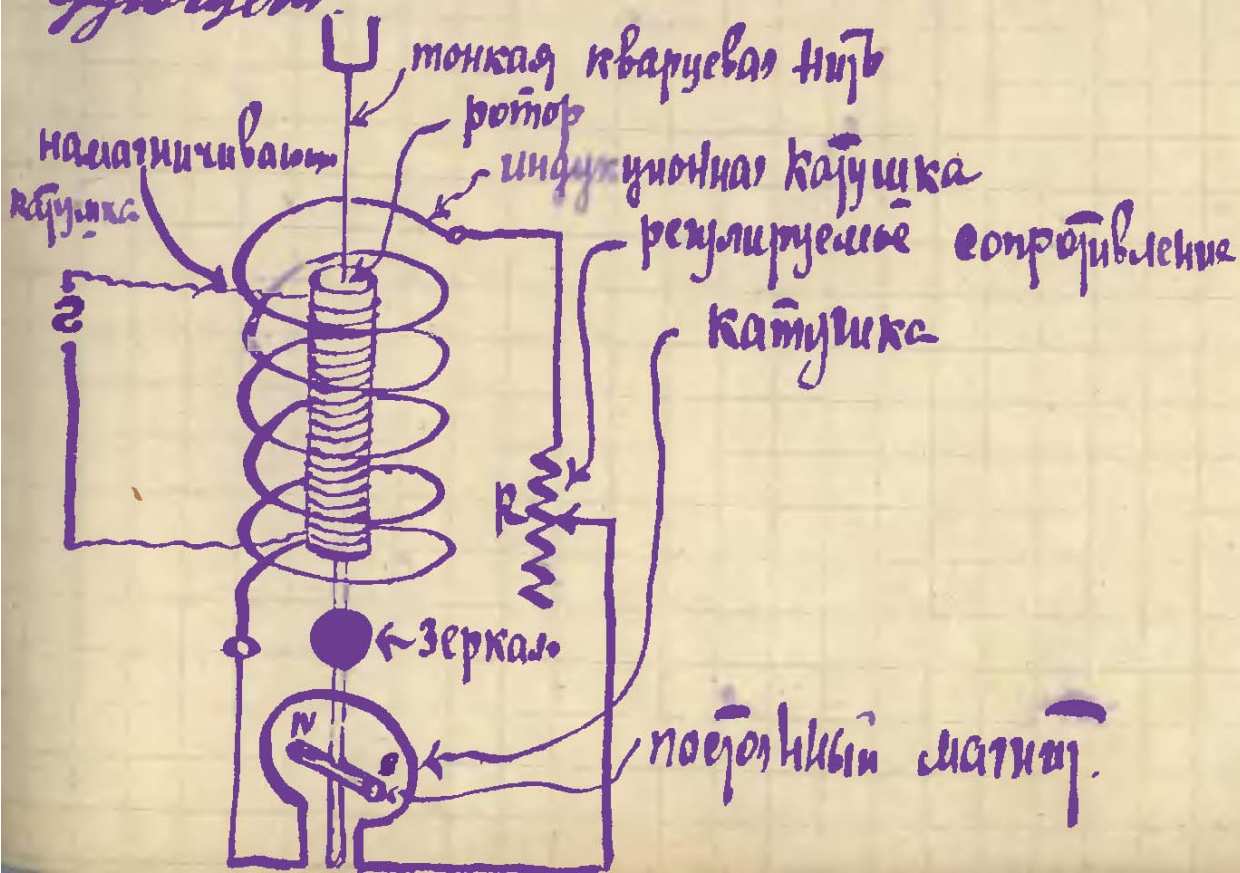 тонкая кварцевая нить
ротор
намагничивающ
катушка
индукционная катушка
регулируемое сопротивление
катушка
R
Зеркало
N
S
постоянный магнит.